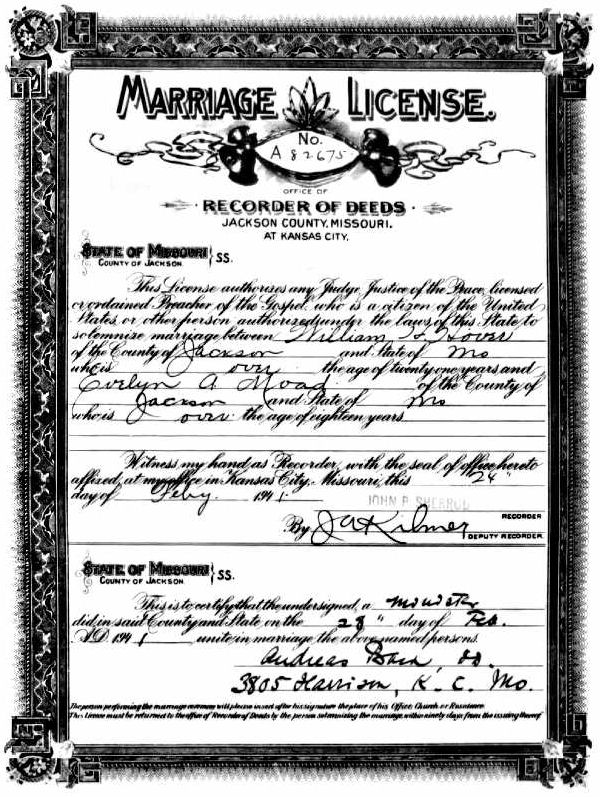 MARRIAGE LICENSE.
No.
A 82675
OFFICE OF
RECORDER OF DEEDS
JACKSON COUNTY, MISSOURI.
AT KANSAS CITY.
STATE OF MISSOURI
COUNTY OF JACKSON
SS.
This License authorizes any Judge, Justice of the Peace, licensed
or ordained Preacher of the Gospel, who is a citizen of the United
States, or other person authorized under the laws of this State, to
solemnize marriage between William Hover
of the County of Jackson and State of Mo
who is over the age of twenty one years and
Evelyn A. Moad of the County of
Jackson and State of Mo
who is over the age of eighteen years
Witness my hand as Recorder, with the seal of office hereto
affixed, at my office in Kansas City, Missouri, this 24"
day of Feby. 1941.
JOHN P. SHERROD
RECORDER
By J A Kilmer
DEPUTY RECORDER
STATE OF MISSOURI
COUNTY OF JACKSON
SS.
This is to certify that the undersigned, a Minister
did in said County and State on the 28" day of Feb.
A.D. 1941 unite in marriage the above named persons.
Andreas Bard, DD.
3805 Harrison, K. C. Mo.
The person performing the marriage ceremony will please insert after his signature the place of his Office, Church or Residence.
This License must be returned to the office of Recorder of Deeds by the person solemnizing the marriage, within ninety days from the issuing thereof